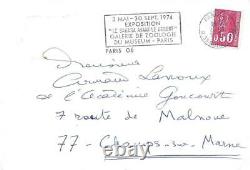 2 MAI-30 SEPT. 1974
EXPOSITION
"LE SAHARA AVANT LE DESERT"
GALERIE DE ZOOLOGIE
DU MUSEUM - PARIS
PARIS 05
0,50
Monsieur
Armand Lanoux
de l'Académie Goncourt
7 route de Malnoue
77 - Champs-sur-Marne
ebay